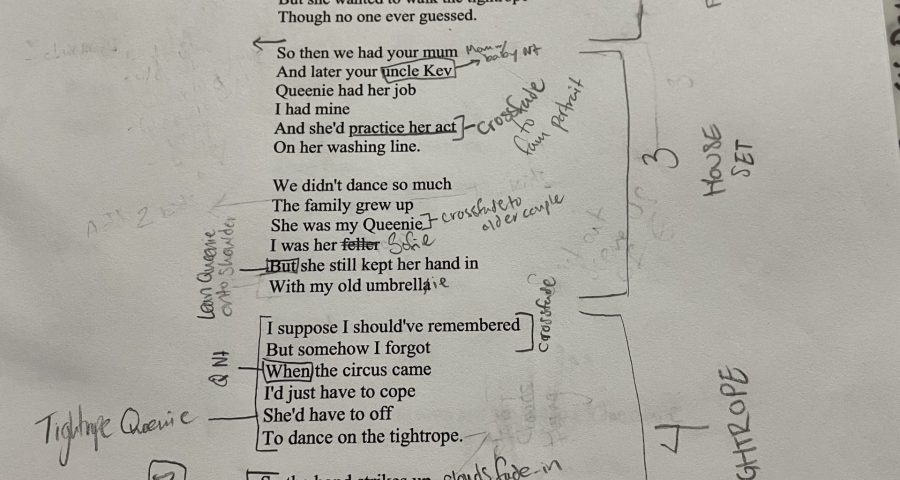 Though no one ever guessed.
So then we had your mum
baby NA
And later your uncle Kev
Queenie had her job
I had mine
And she'd practice her act
crossfade
to
fam portrait
On her washing line.
3
HOUSE
SET
We didn't dance so much
The family grew up
She was my Queenie
crossfade to
older couple
I was her feller Sofie
But she still kept her hand in
Lean Queenie
onto shoulder
With my old umbrellaie
I suppose I should've remembered
But somehow I forgot
crossfade
When the circus came
Q NA
I'd just have to cope
She'd have to off
Tightrope Queenie
To dance on the tightrope.
4
GHTROPE
clouds fade-in